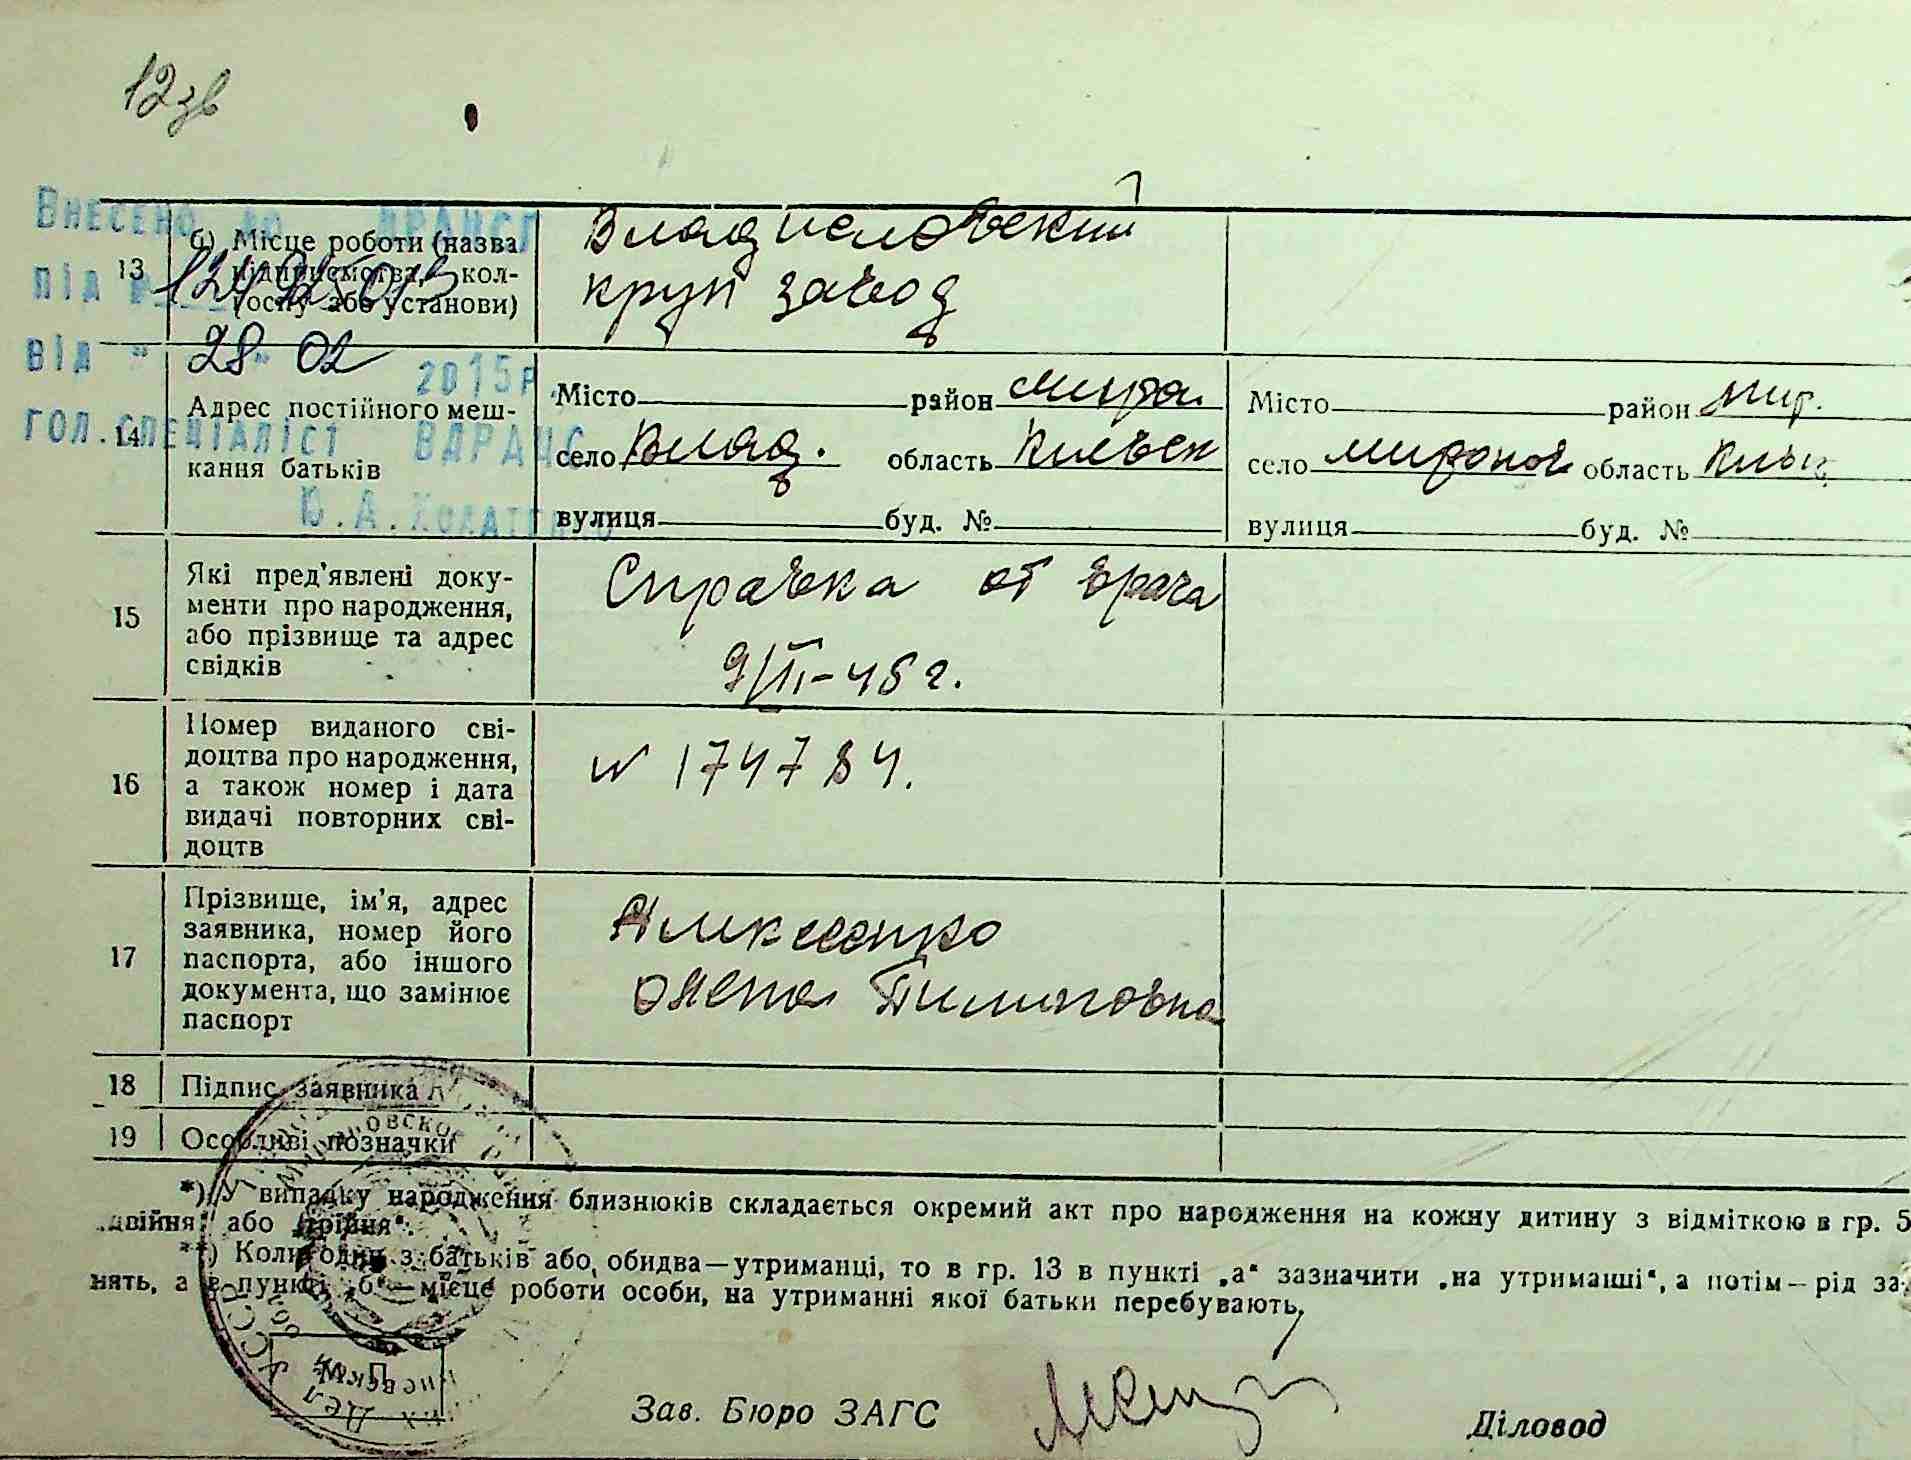 12зв
Внесено до ДРАНСГ
під
від " 28 " 02 2015р.
гол.спеціаліст ВДРАЦС
Ю.А.
13 б) Місце роботи (назва підприємства, колгоспу або установи) Владиславський
круп завод
14 Адрес постійного мешкання батьків
Місто район Миро. Місто район Мир.
село Влад. область Киевск село Миронов область Киев
вулиця буд. № вулиця буд. №
15 Які пред'явлені документи про народження, або прізвище та адрес свідків
Справка от врача
9/III-48 г.
16 Номер виданого свідоцтва про народження, а також номер і дата видачі повторних свідоцтв
N 174784.
17 Прізвище, ім'я, адрес заявника, номер його паспорта, або іншого документа, що замінює паспорт
Алексеенко
Олена
18 Підпис заявника
19 Особливі позначки
*) У випадку народження близнюків складається окремий акт про народження на кожну дитину з відміткою в гр. 5
„двійня“ або „трійня“.
**) Коли один з батьків або обидва—утриманці, то в гр. 13 в пункті „а“ зазначити „на утриманні“, а потім—рід за-
нять, а в пункті „б“—місце роботи особи, на утриманні якої батьки перебувають,
М. П.
Зав. Бюро ЗАГС Діловод